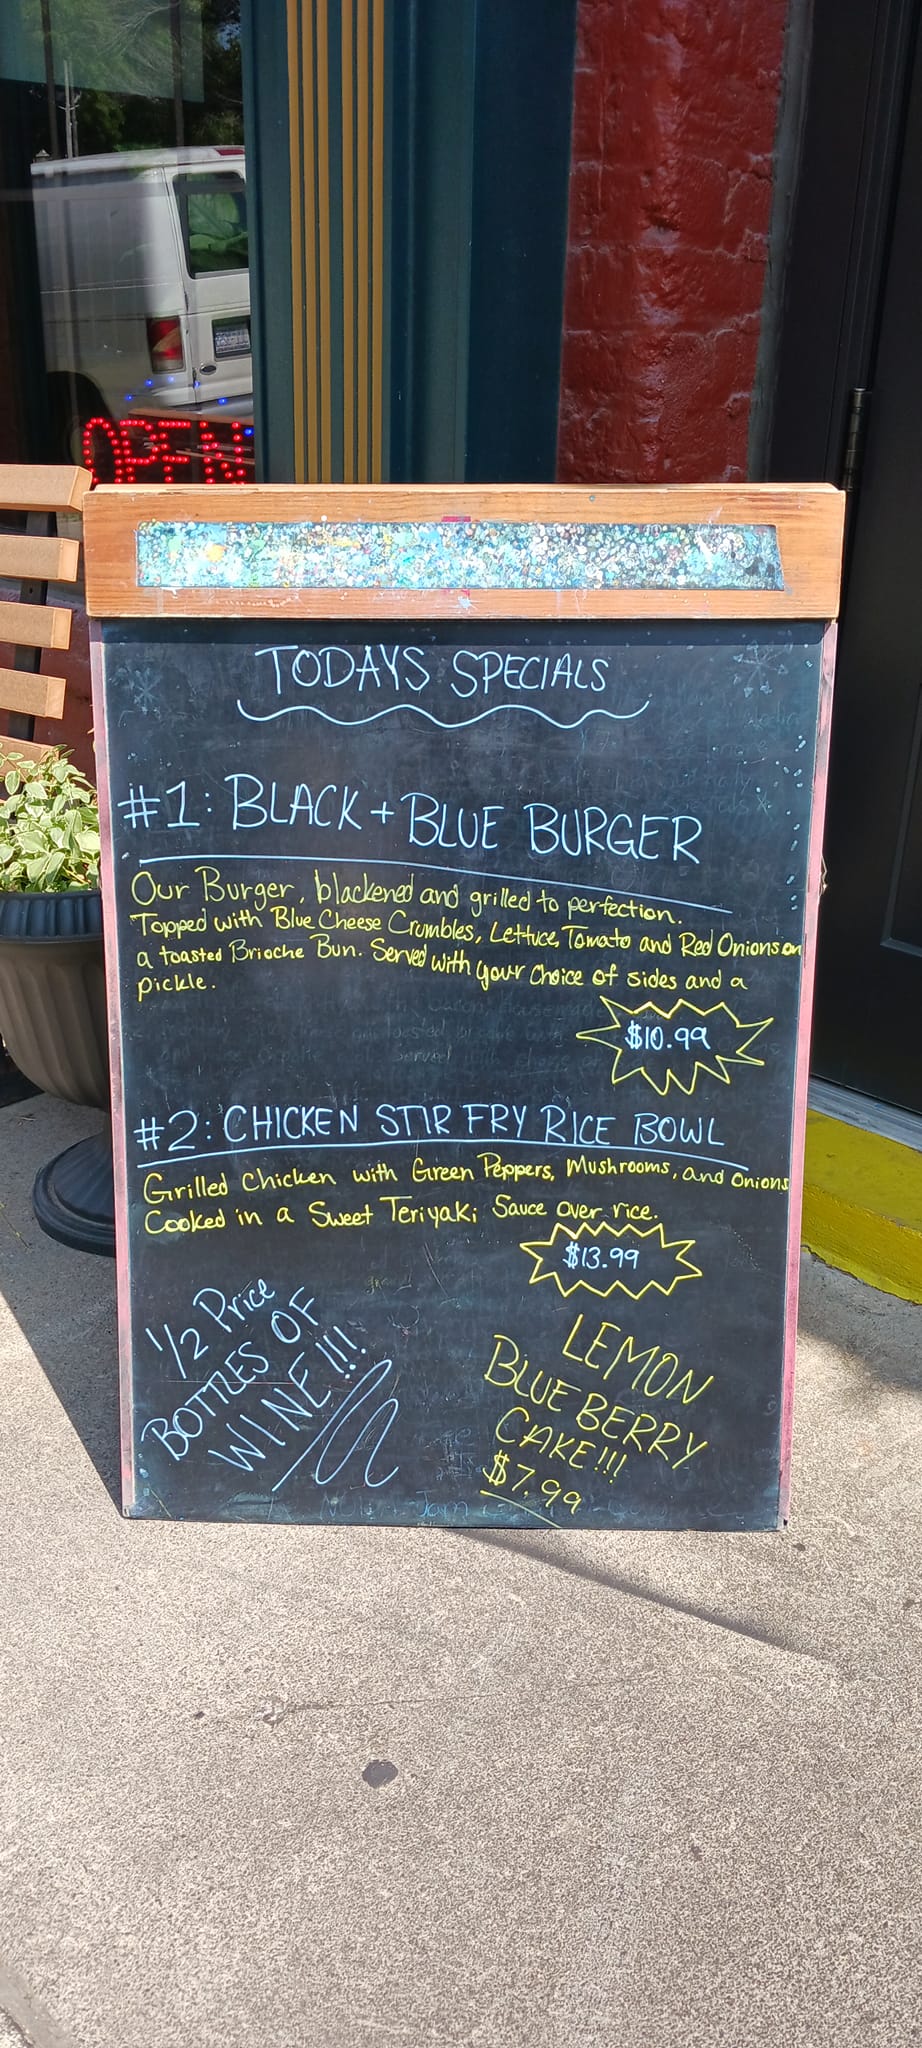 OPEN
TODAYS SPECIALS
#1: BLACK + BLUE BURGER
Our Burger, blackened and grilled to perfection.
Topped with Blue Cheese Crumbles, Lettuce, Tomato and Red Onions on
a toasted Brioche Bun. Served with your choice of sides and a
pickle.
$10.99
#2: CHICKEN STIR FRY RICE BOWL
Grilled Chicken with Green Peppers, Mushrooms, and Onions
Cooked in a Sweet Teriyaki Sauce over rice.
$13.99
1/2 Price
BOTTLES OF
WINE!!!
LEMON
BLUEBERRY
CAKE!!!
$7.99